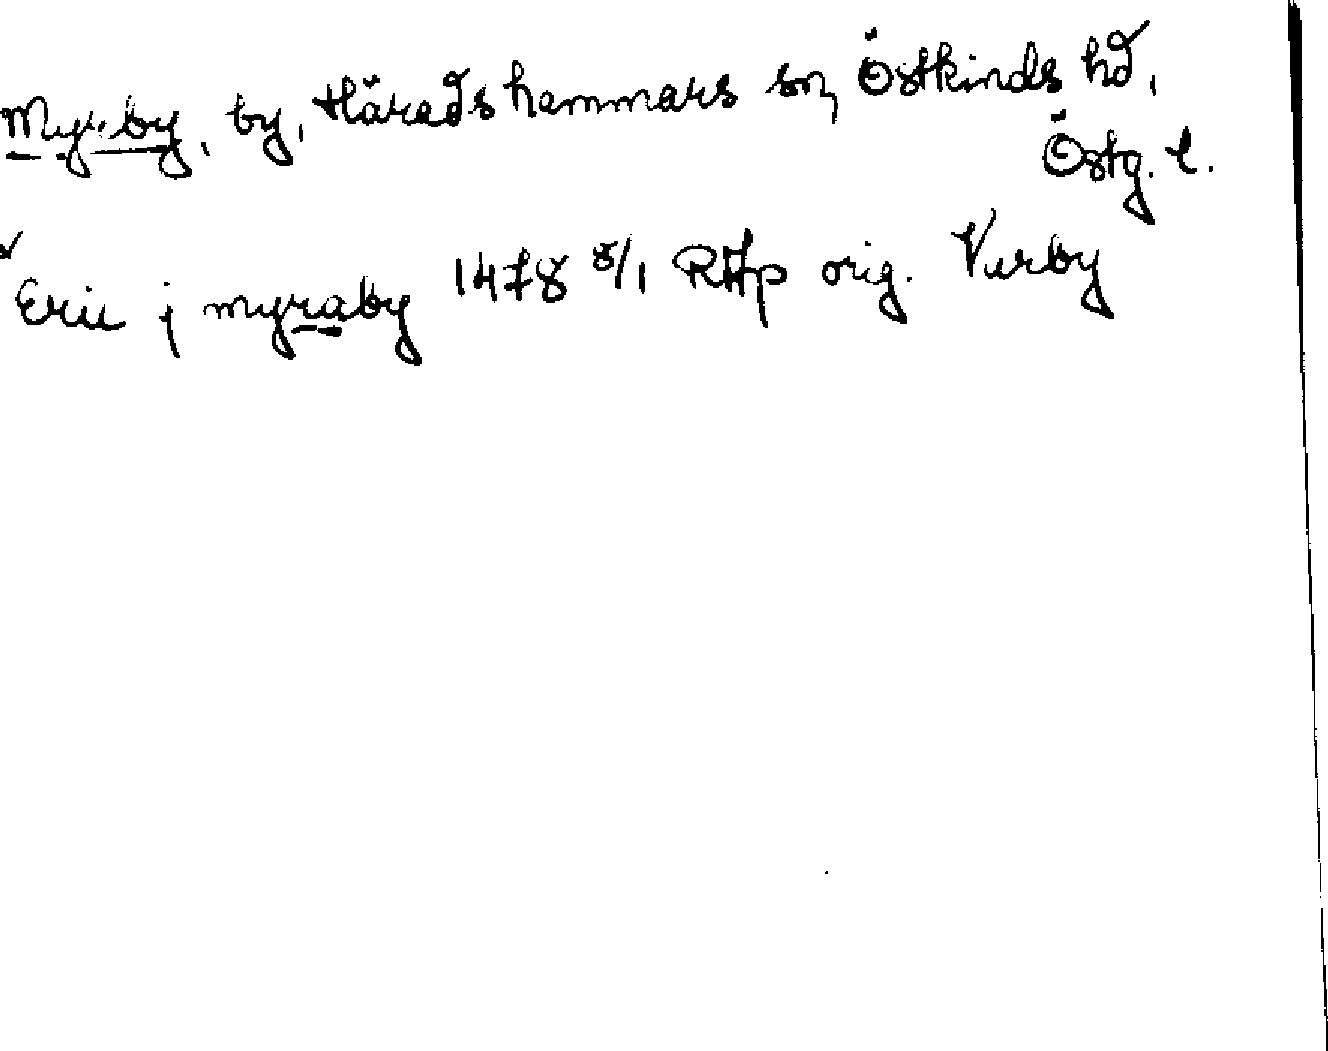 Myrby, by, Häradshammars sn, Östkinds hd,
Östg. l.
Eric j myraby 1478 8/1 RAp orig. Verby